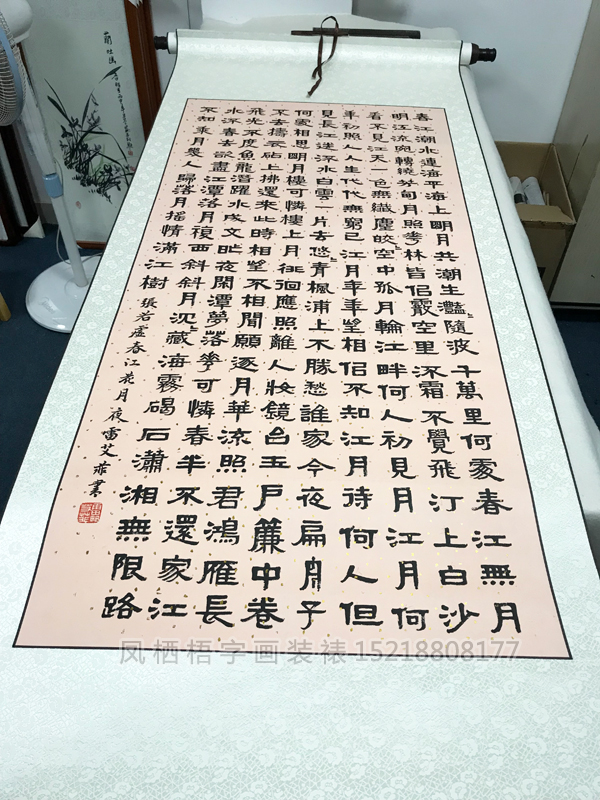 春江潮水連海平海上明月共潮生灩〻隨波千萬里何處春江無月
明江流宛轉繞芳甸月照花林皆似霰空里流霜不覺飛汀上白沙
看不見江天一色無纖塵皎〻空中孤月輪江畔何人初見月江月何
年初照人人生代代無窮已江月年年望相似不知江月待何人但
見長江送流水白雲一片去悠〻青楓浦上不勝愁誰家今夜扁舟子
何處相思明月樓可憐樓上月徘徊應照離人妝鏡台玉戶簾中卷
不去擣衣砧上拂還來此時相望不相聞願逐月華流照君鴻雁長
飛光不度魚龍潛躍水成文昨夜閑潭夢落花可憐春半不還家江
水流春去欲盡江潭落月複西斜斜月沉〻藏海霧碣石瀟湘無限路
不知乘月幾人歸落月搖情滿江樹 張若虛春江花月夜 雷艾
凤栖梧字画装裱15218808177